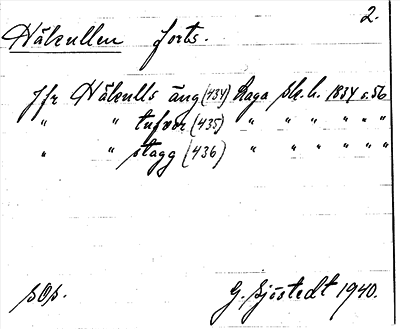 2.
Håkullen forts.
Jfr Håkulls äng (434) Laga sk. h. 1834 s. 56
" " tufvor (435) " " " " "
" " stagg (436) " " " " "
sOs. G. Sjöstedt 1940.